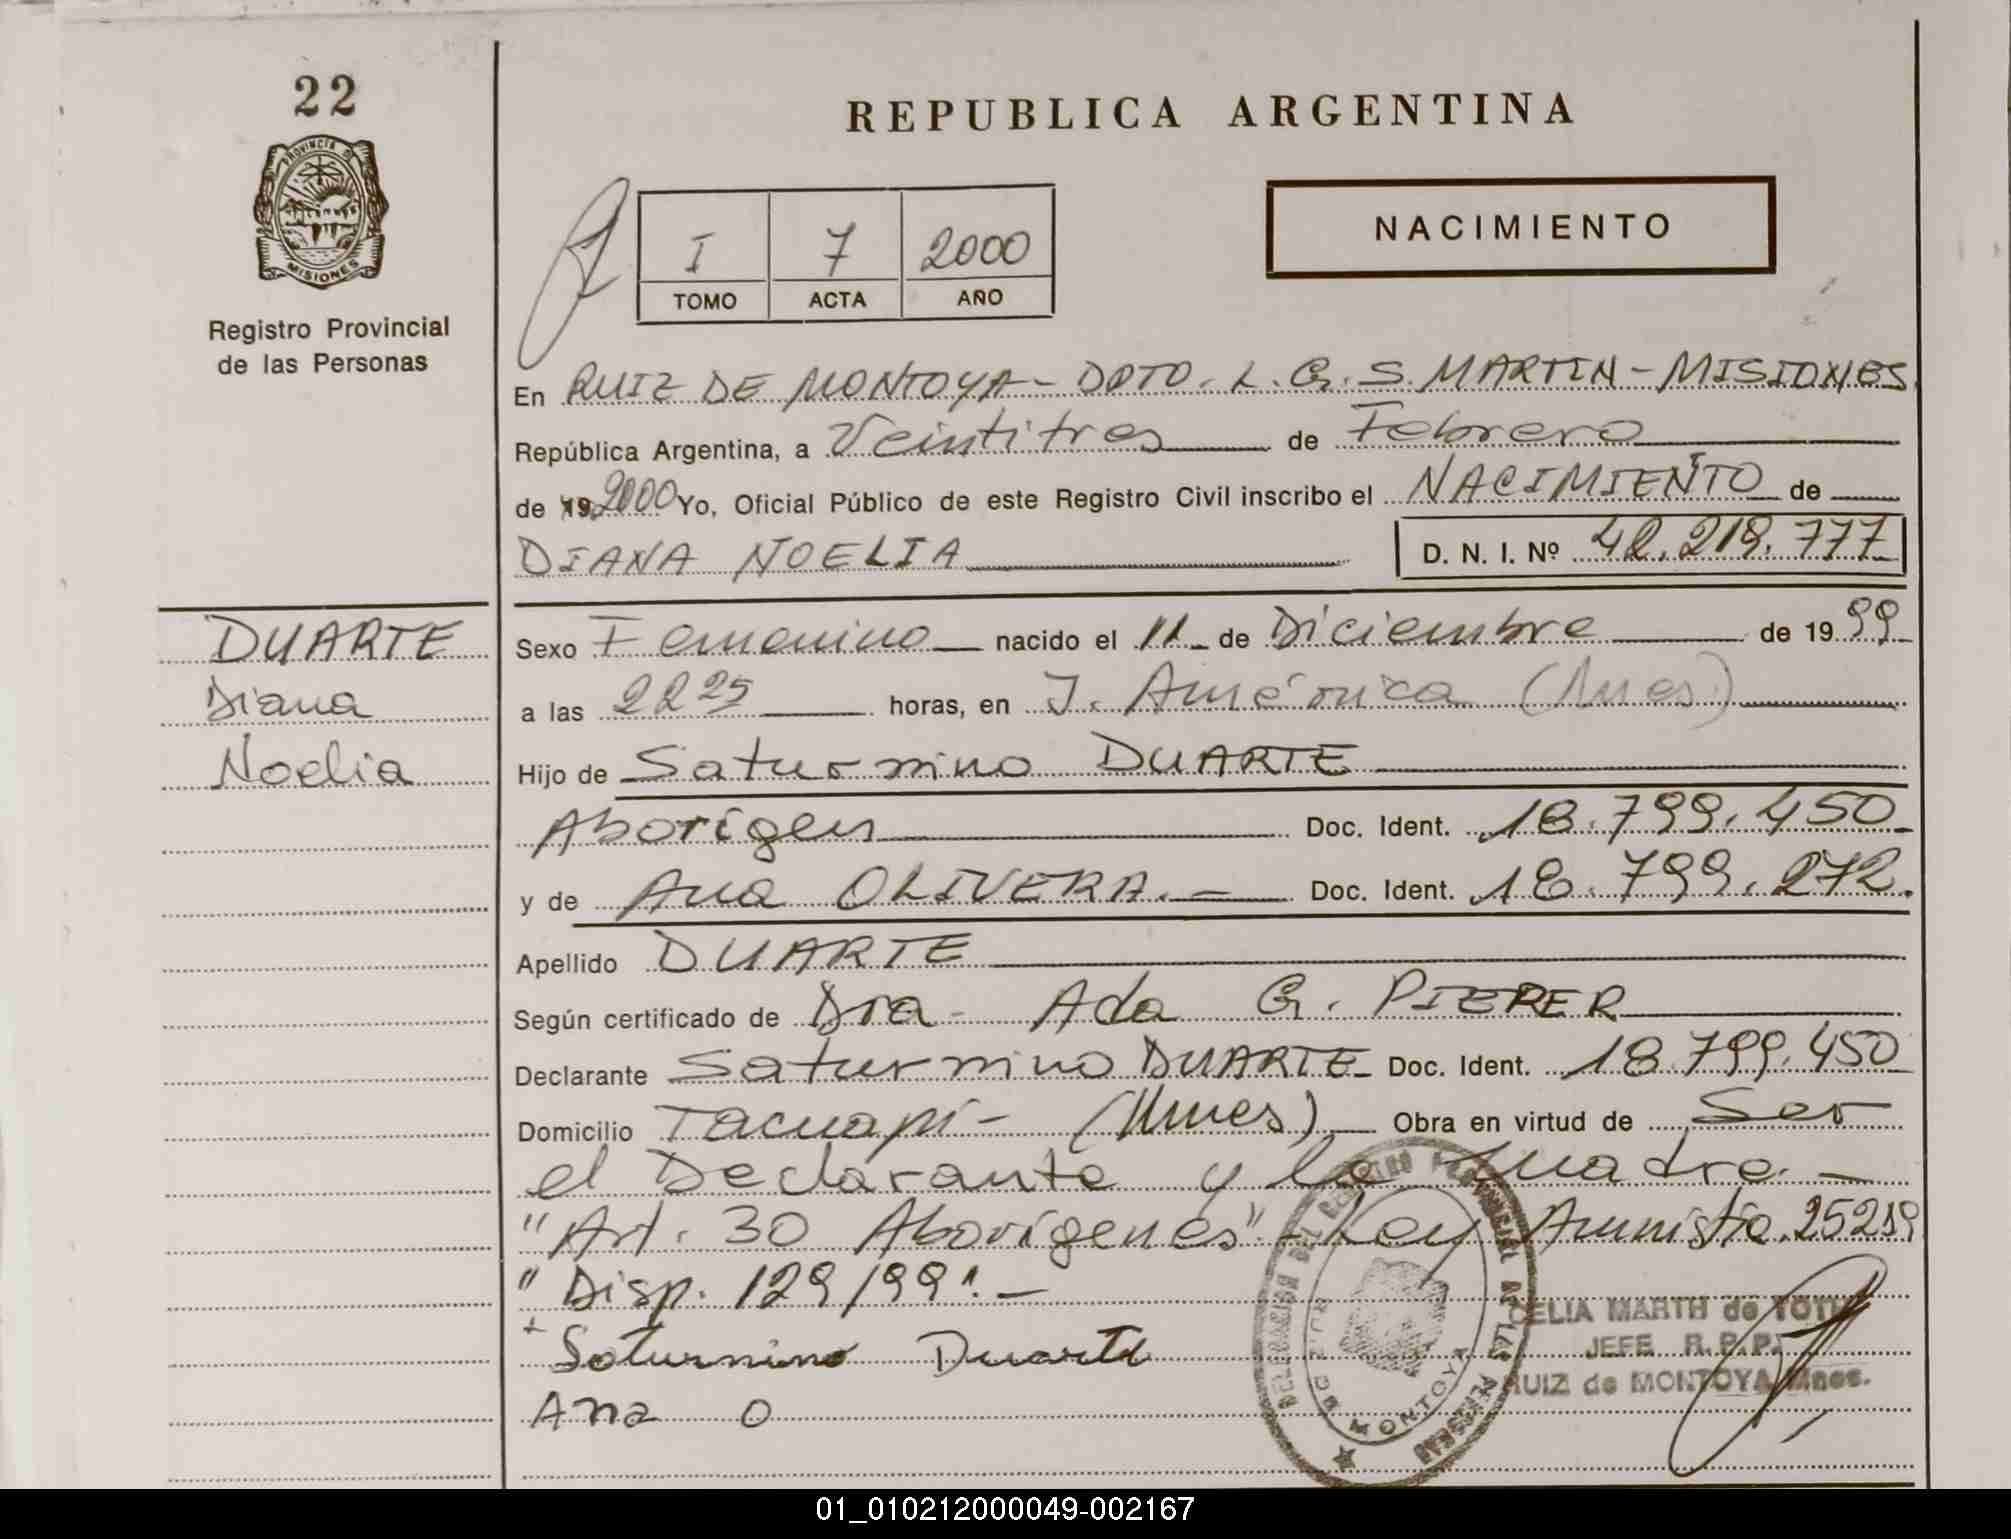 22
PROVINCIA DE
MISIONES
Registro Provincial
de las Personas
REPUBLICA ARGENTINA
I 7 2000
TOMO ACTA AÑO
NACIMIENTO
En RUIZ DE MONTOYA - DPTO. L. G. S. MARTIN - MISIONES
República Argentina, a Veintitres de Febrero
de 19 2000 Yo, Oficial Público de este Registro Civil inscribo el NACIMIENTO de
DIANA NOELIA D. N. I. Nº 42.218.777
DUARTE
Diana
Noelia
Sexo Femenino nacido el 11 de Diciembre de 19 99
a las 22 25 horas, en J. América (Mnes)
Hijo de Saturnino DUARTE
Aborigen Doc. Ident. 18.799.450
y de Ana OLIVERA.- Doc. Ident. 18.799.272.
Apellido DUARTE
Según certificado de Dra. Ada G. PIERER
Declarante Saturnino DUARTE Doc. Ident. 18.799.450
Domicilio Tacuapí - (Mnes) Obra en virtud de Ser
el Declarante y la madre.-
"Art. 30 Aborígenes" Ley Amnistía 25219
"Disp. 129/99".-
+ Saturnino Duarte
Ana O
DELEGACION DEL REGISTRO PROVINCIAL DE LAS PERSONAS
MONTOYA
CELIA MARTH de TOTH
JEFE R.P.P.
RUIZ de MONTOYA, Mnes.
01_010212000049-002167